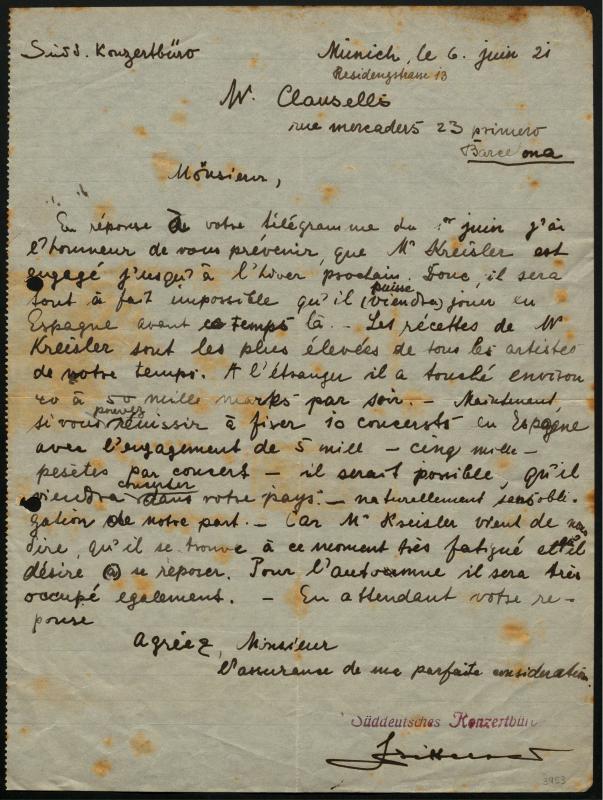 Südd. Konzertbüro
Munich, le 6. juin 21
Residenzstrasse 13
Mr. Clausells
rue mercaders 23 primero
Barcelona
Monsieur,
En réponse de votre télégramme du 1er juin j'ai
l'honneur de vous prévenir, que Mr Kreisler est
engagé jusqu'à l'hiver prochain. Donc, il sera
tout à fait impossible qu'il (viendra) puisse jouer en
Espagne avant ce temps là. – Les récettes de Mr
Kreisler sont les plus élevées de tous les artistes
de notre temps. A l'étranger il a touché environ
40 à 50 mille marks par soir. – Maintenant
si vous pouvez réussir à fixer 10 concerts en Espagne
avec l'engagement de 5 mill – cinq mille –
pesètes par concert – il serait possible, qu'il
viendra dans votre pays – naturellement sans obli-
gation de notre part. – Car Mr Kreisler vient de nous
dire, qu'il se trouve à ce moment très fatigué et qu'il
désire se réposer. Pour l'automne il sera très
occupé egalement. – En attendant votre re-
ponse
Agréez, Monsieur
l'assurance de ma parfaite consideration.
Süddeutsches Konzertbüro
3953